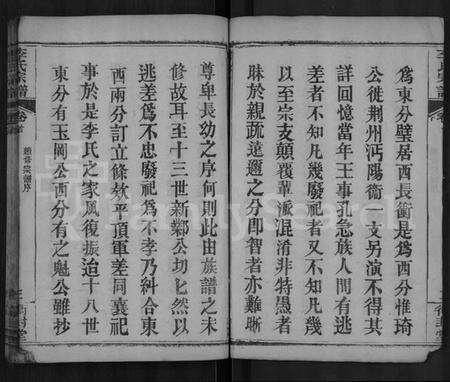 為東分璧居西長衡是為西分惟琦
公徙荆州沔陽衛一支另演不得其
詳回憶當年王事孔急族人間有逃
差者不知凡幾廢祀者又不知凡幾
以至宗支顛覆華派混淆非特愚者
昧於親疏遠邇之分即智者亦難晰
尊卑長幼之序何則此由族譜之未
修故耳至十三世新鄰公切匕然以
逃差為不忠廢祀為不孝乃糾合東
西兩分訂立條欸平頂重差同襄祀
事於是李氏之家風復振迨十八世
東分有玉岡公西分有之魁公雖抄
李氏宗譜
卷首
FamilySearch